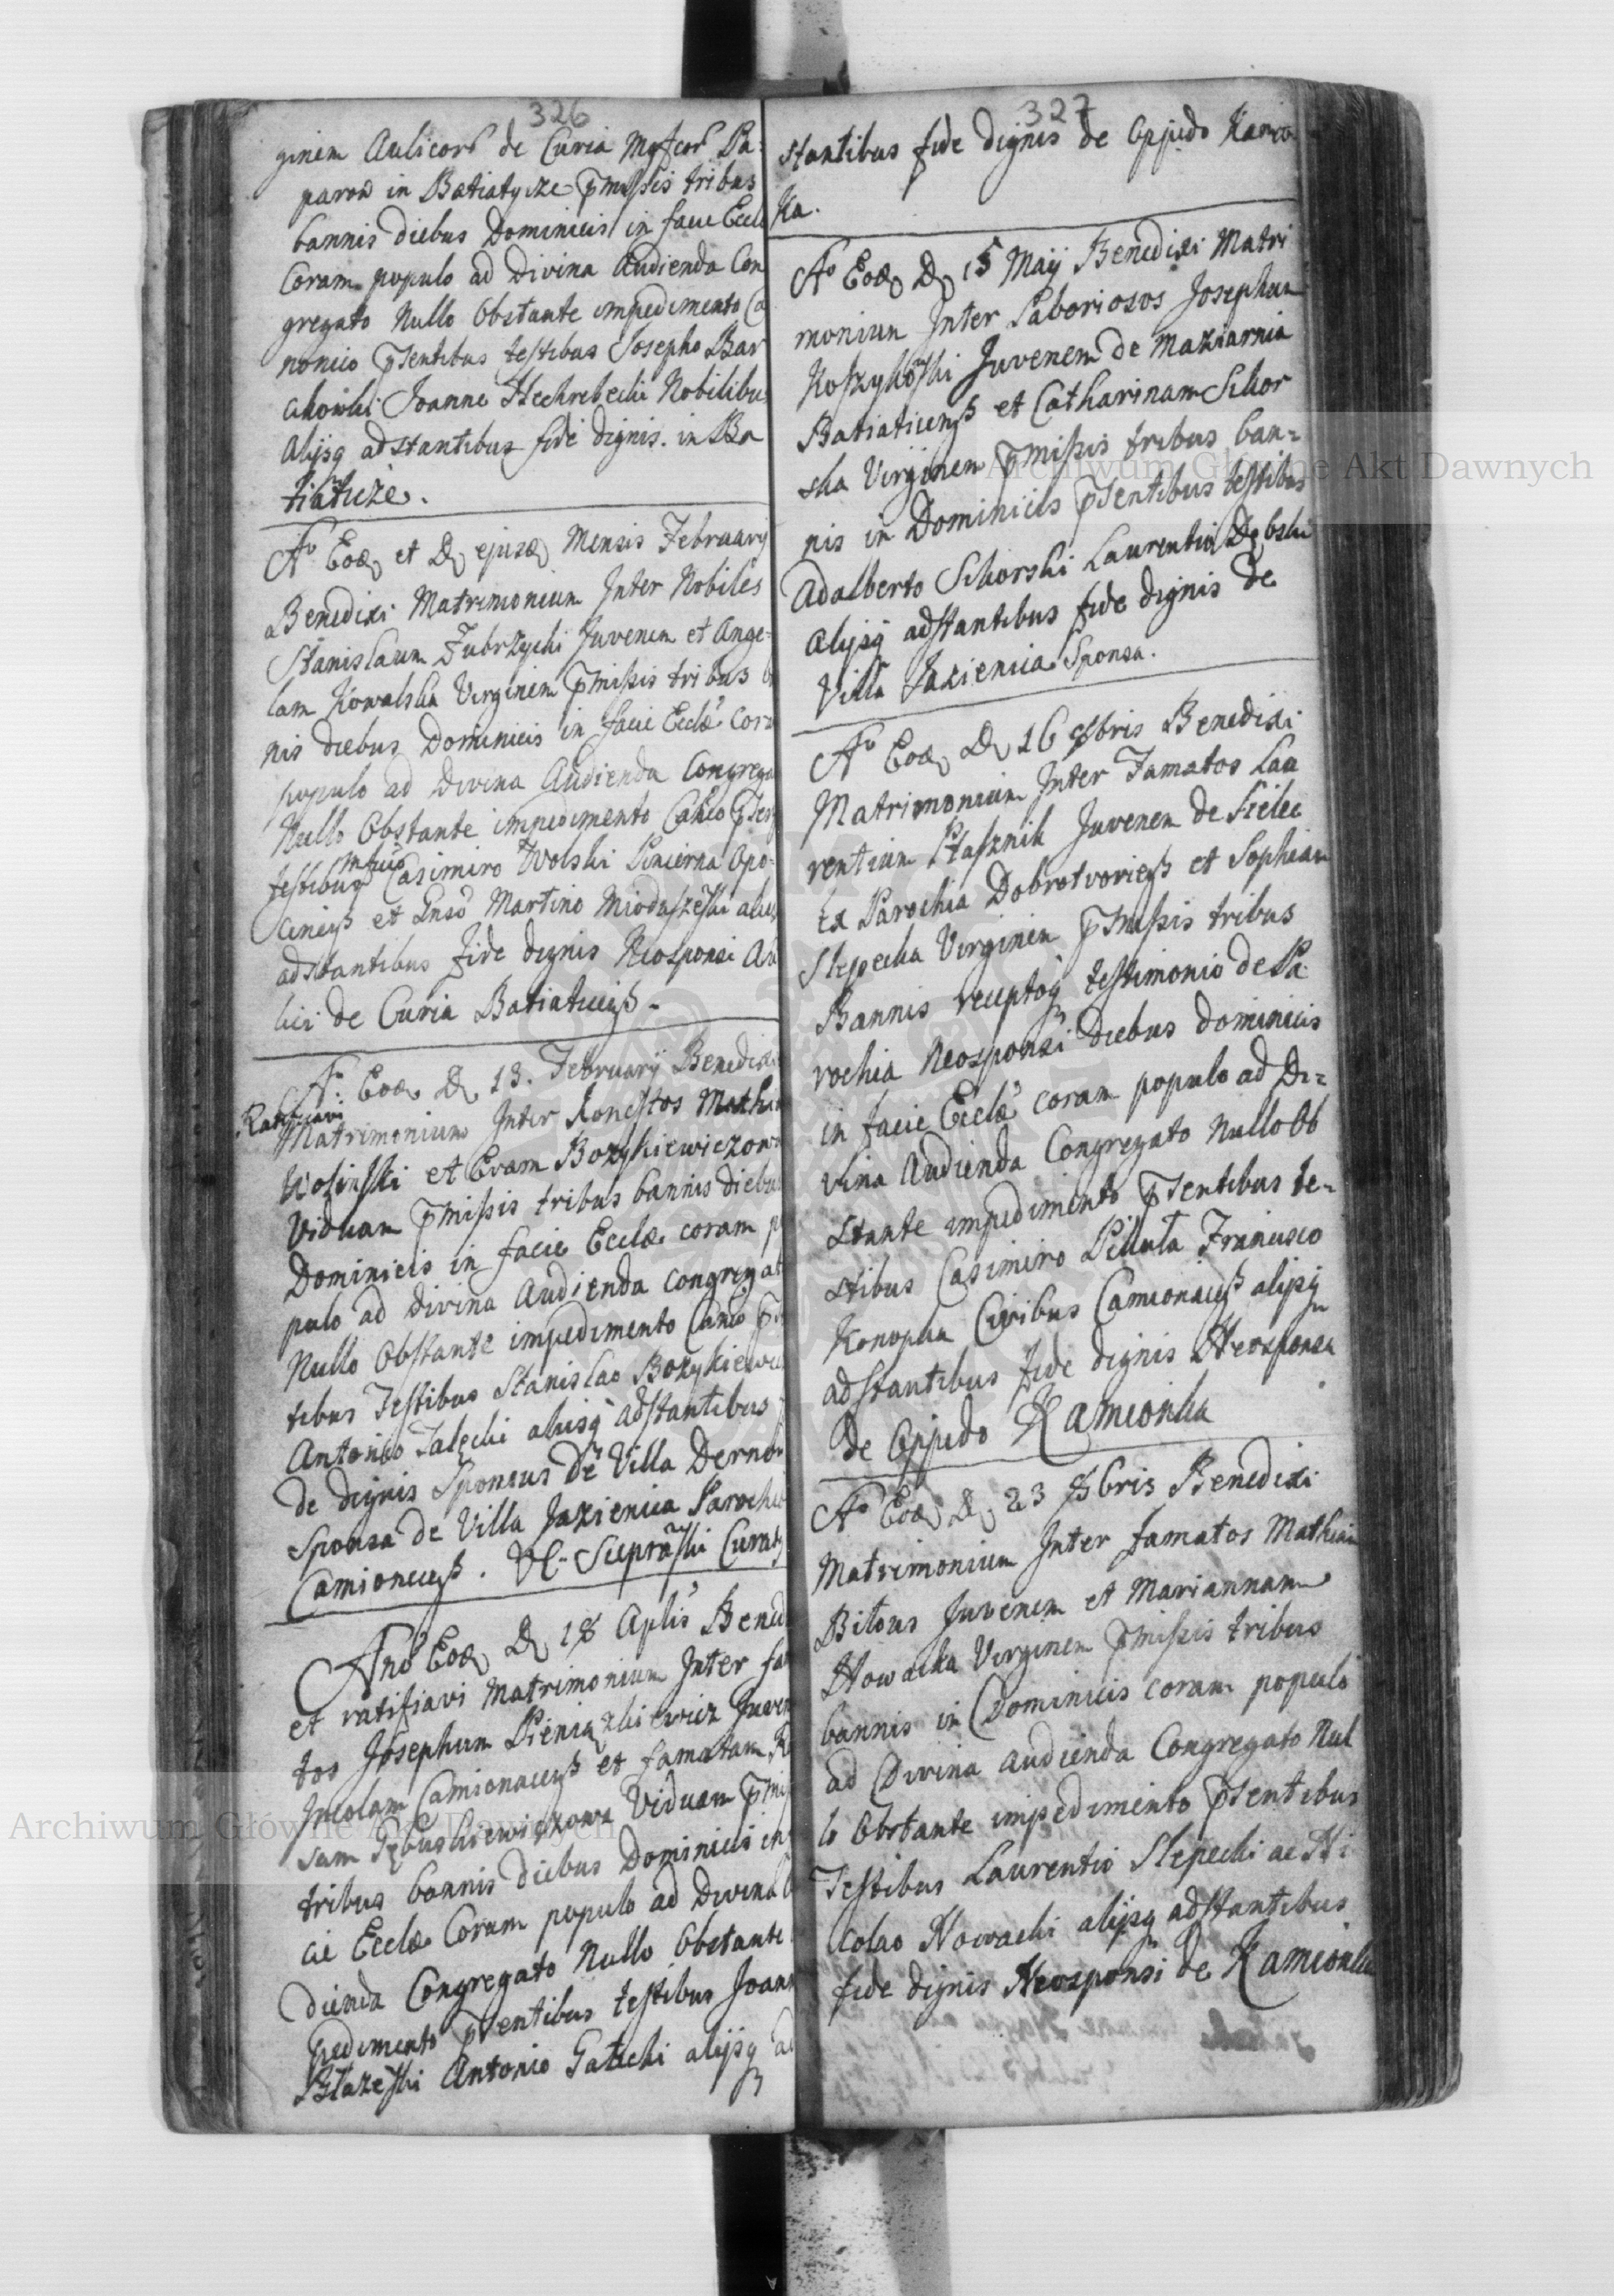 326
ginem Aulicors de Curia Mgfcor Pa-
paron in Batiatycze pmissis tribus
bannis diebus Dominicis in facie Eccla
Coram populo ad Divina Audienda Con
gregato Nullo Obstante impedimento Ca
nonico psentibus testibus Josepho Bar
chowski Joanne Hechrebecki Nobilibus
Alijsq adstantibus fide dignis. in Ba
tiatucze.
Ao Eod et D ejusd Mensis February
Benedixi Matrimonium Inter Nobiles
Stanislaum Zubrzycki Juvenem et Ange-
lam Kowalska Virginem pmissis tribus
nis diebus Dominicis in facie Ecclae Cora
populo ad Divina Audienda Congrega
Nullo Obstante impedimento Canco psen
testibus Mfico Casimiro Wolski Pincerna Opo-
cinens et Gnso Martino Miodusze͠ski alijs
adstantibus fide dignis Neosponsi Au
lici de Curia Batiaticens
Ao Eod D 13. February Benedixi
Ratificavi
Matrimonium Inter Honestos Mathia
Wolinski et Evam Bozykiewiczowa
Viduam pmissis tribus bannis diebus
Dominicis in facie Ecclae coram po
pulo ad Divina Audienda congregat
Nullo Obstante impedimento Canco psen
tibus Testibus Stanislao Bozykiewic
Antonio Galecki alijsq adstantibus
de dignis Sponsus de Villa Dernow
Sponsa de Villa Jazienica Parochia
Camionecens. VC. Scipra͠ski Curatq
Ano Eod D 18 Aplis Bened
et ratifiavi Matrimonium Inter fa
tos Josephum Pieniązkiewicz Juven
Incolam Camionacens et famatam R
sam Jębuskiewiczowa Viduam pmis
tribus bannis diebus Dominicis in
cie Ecclae Coram populo ad Divina
dienda Congregato Nullo Obstante
pedimento psentibus testibus Joann
Błaze͠ski Antonio Gatecki alijsq ad
327
stantibus fide dignis de Oppido Kamio
ka.
Ao Eod D 15 Maij Benedixi Matri
monium Inter Laboriosos Josephum
Koszyko͠ski Juvenem de Maziarnia
Batiaticens et Catharinam Sikor
ska Virginem pmissis tribus ban=
nis in Dominicis psentibus testibus
Adalberto Sikorski Laurentio Dębski
alijsq adstantibus fide dignis de
Villa Jazienica Sponsa.
Ao Eod D 16 8bris Benedixi
Matrimonium Inter Famatos Lau
rentium Ptasznik Juvenem de Sielec
Ex Parochia Dobrotworiens et Sophiam
Slepecka Virginem pmissis tribus
Bannis receptoq testimonio de Pa
rochia Neosponsi diebus dominicis
in facie Ecclae coram populo ad Di=
vina Audienda Congregato Nullo Ob
stante impedimento psentibus te=
stibus Casimiro Pikuła Francisco
Konopka Civibus Camionacens alijsq
adstantibus fide dignis Neosponsa
de Oppido Kamionka
Ao Eod D 23 8bris Benedixi
Matrimonium Inter famatos Mathiam
Bitous Juvenem et Mariannam
Nowacka Virginem pmissis tribus
bannis in Dominicis coram populo
ad Divina Audienda Congregato Nul
lo Obstante impedimento psentibus
Testibus Laurentio Slepecki ac Ni
colao Nowacki alijsq adstantibus
fide dignis Neosponsi de Kamionka
Archiwum Główne Akt Dawnych
Archiwum Główne Akt Dawnych